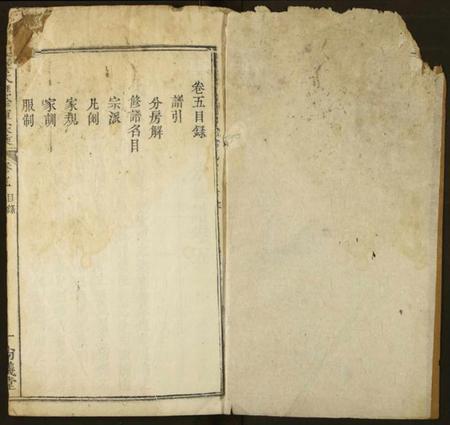 卷五目錄
譜引
分房解
修譜名目
宗派
凡例
家規
家訓
服制
目錄
一